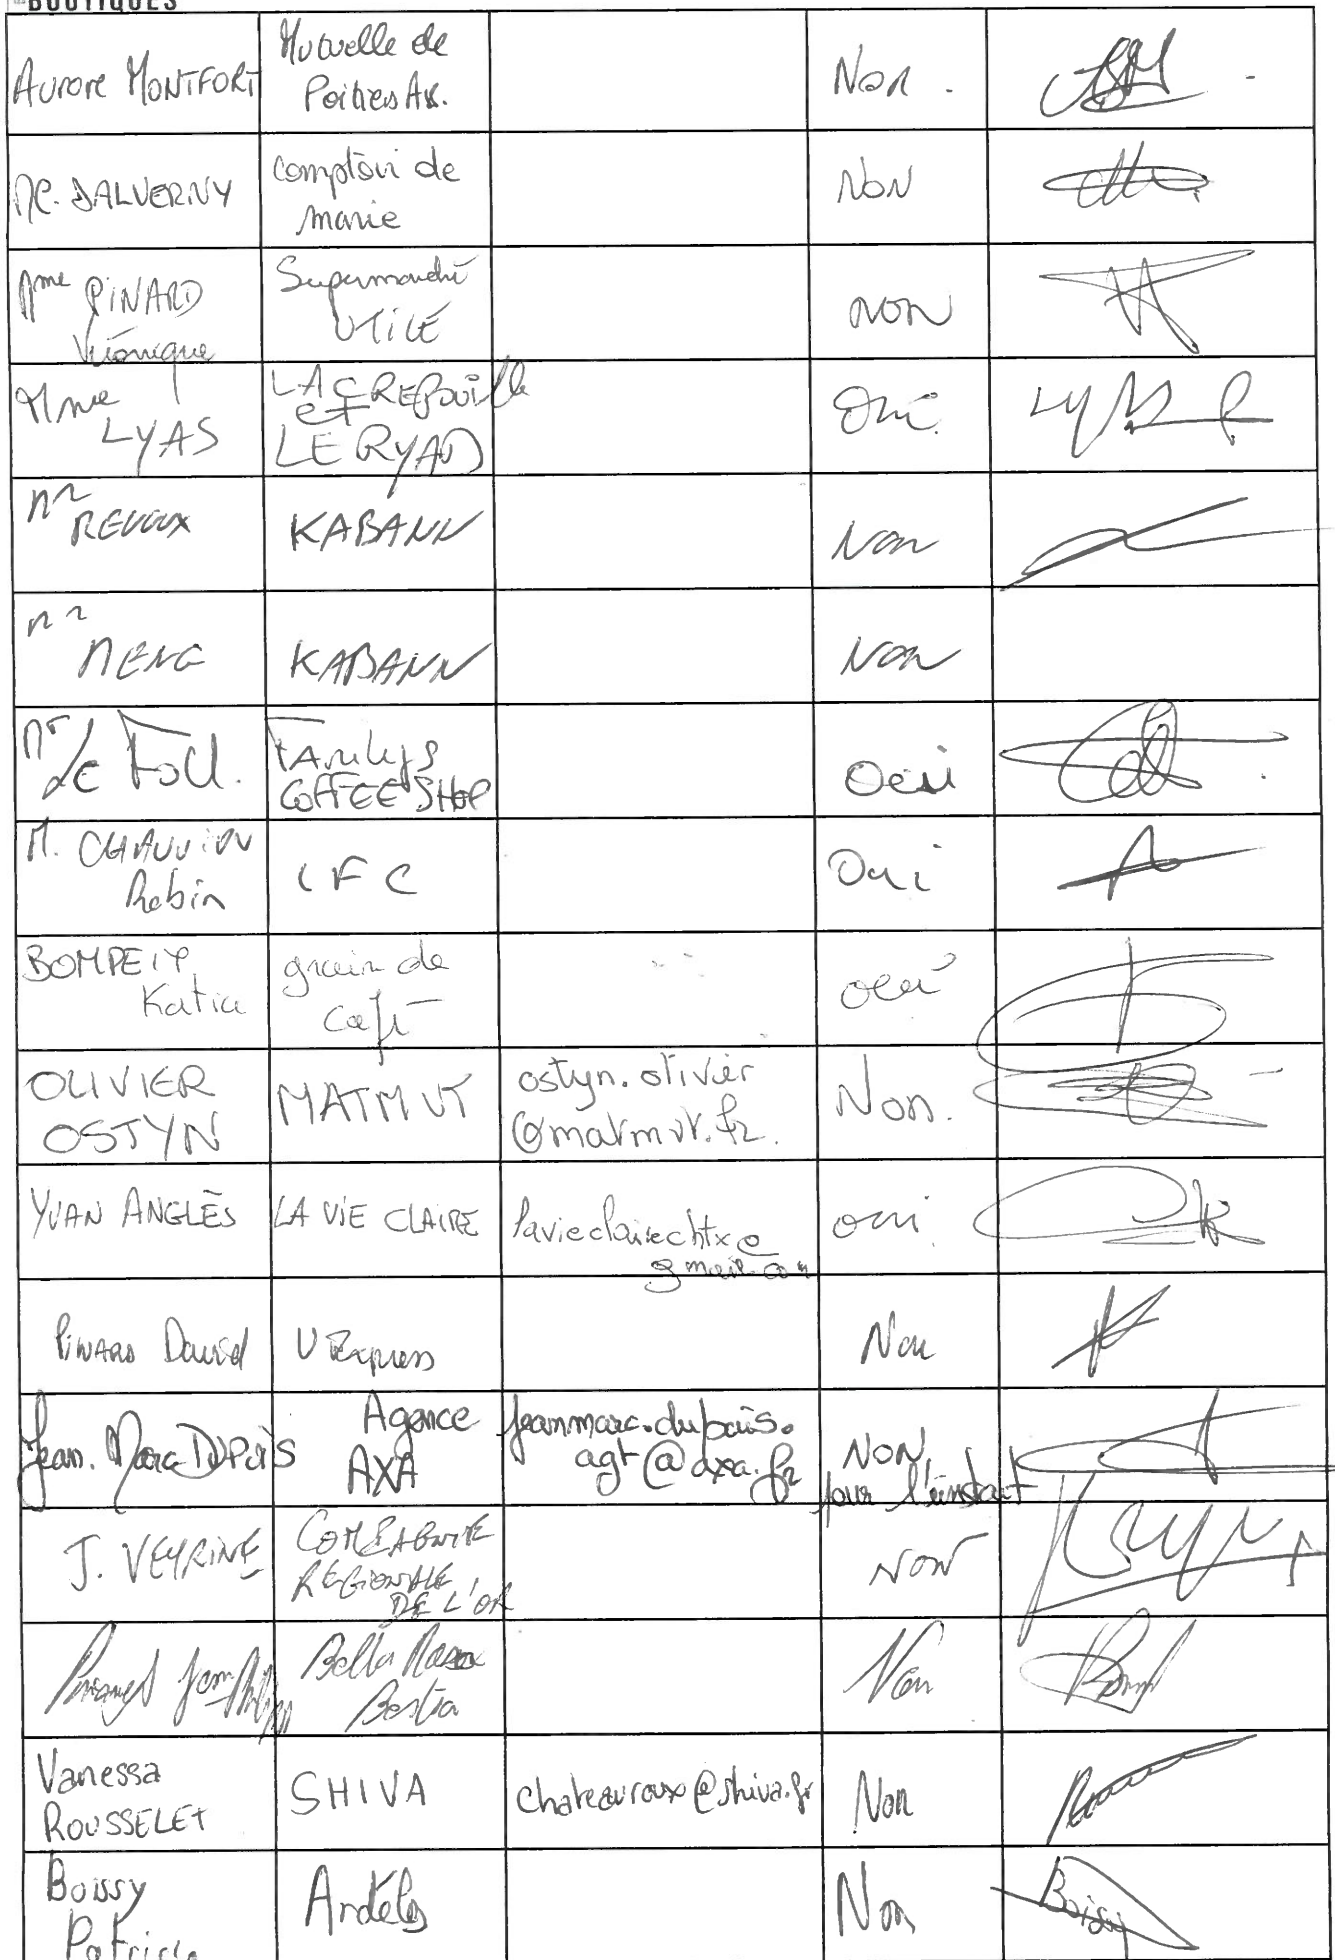 BOUTIQUES
Aurore MONTFORT
Mutuelle de
Poitiers Ass.
Non.
MC. DALVERNY
comptoir de
marie
NON
Mme PINARD
Véronique
Supermarché
UTILE
NON
Mme
LYAS
LA CREPOUILLE
et
LE RYAD
Oui.
Mr
REVOUX
KABANN
Non
Mr
MENG
KABANN
Non
Mr
Le Foll.
Familys
COFFEE SHOP
Oui
M. CHAUVIN
Robin
IFC
Oui
BOMPEIX
Katia
grain de
café
oui
OLIVIER
OSTYN
MATMUT
ostyn.olivier
@matmut.fr.
Non.
YVAN ANGLÈS
LA VIE CLAIRE
lavieclairechtx@
gmail.com
oui
PINARD David
U Express
Non
Jean-Marc DUPUIS
Agence
AXA
agt@axa.fr
NON,
pour l'instant
J. VEYRINE
COMPAGNIE
REGIONALE
DE L'OR
NON
Bella
Non
Vanessa
ROUSSELET
SHIVA
chateauroux@shiva.fr
Non
Boissy
Patricia
Non
Boissy